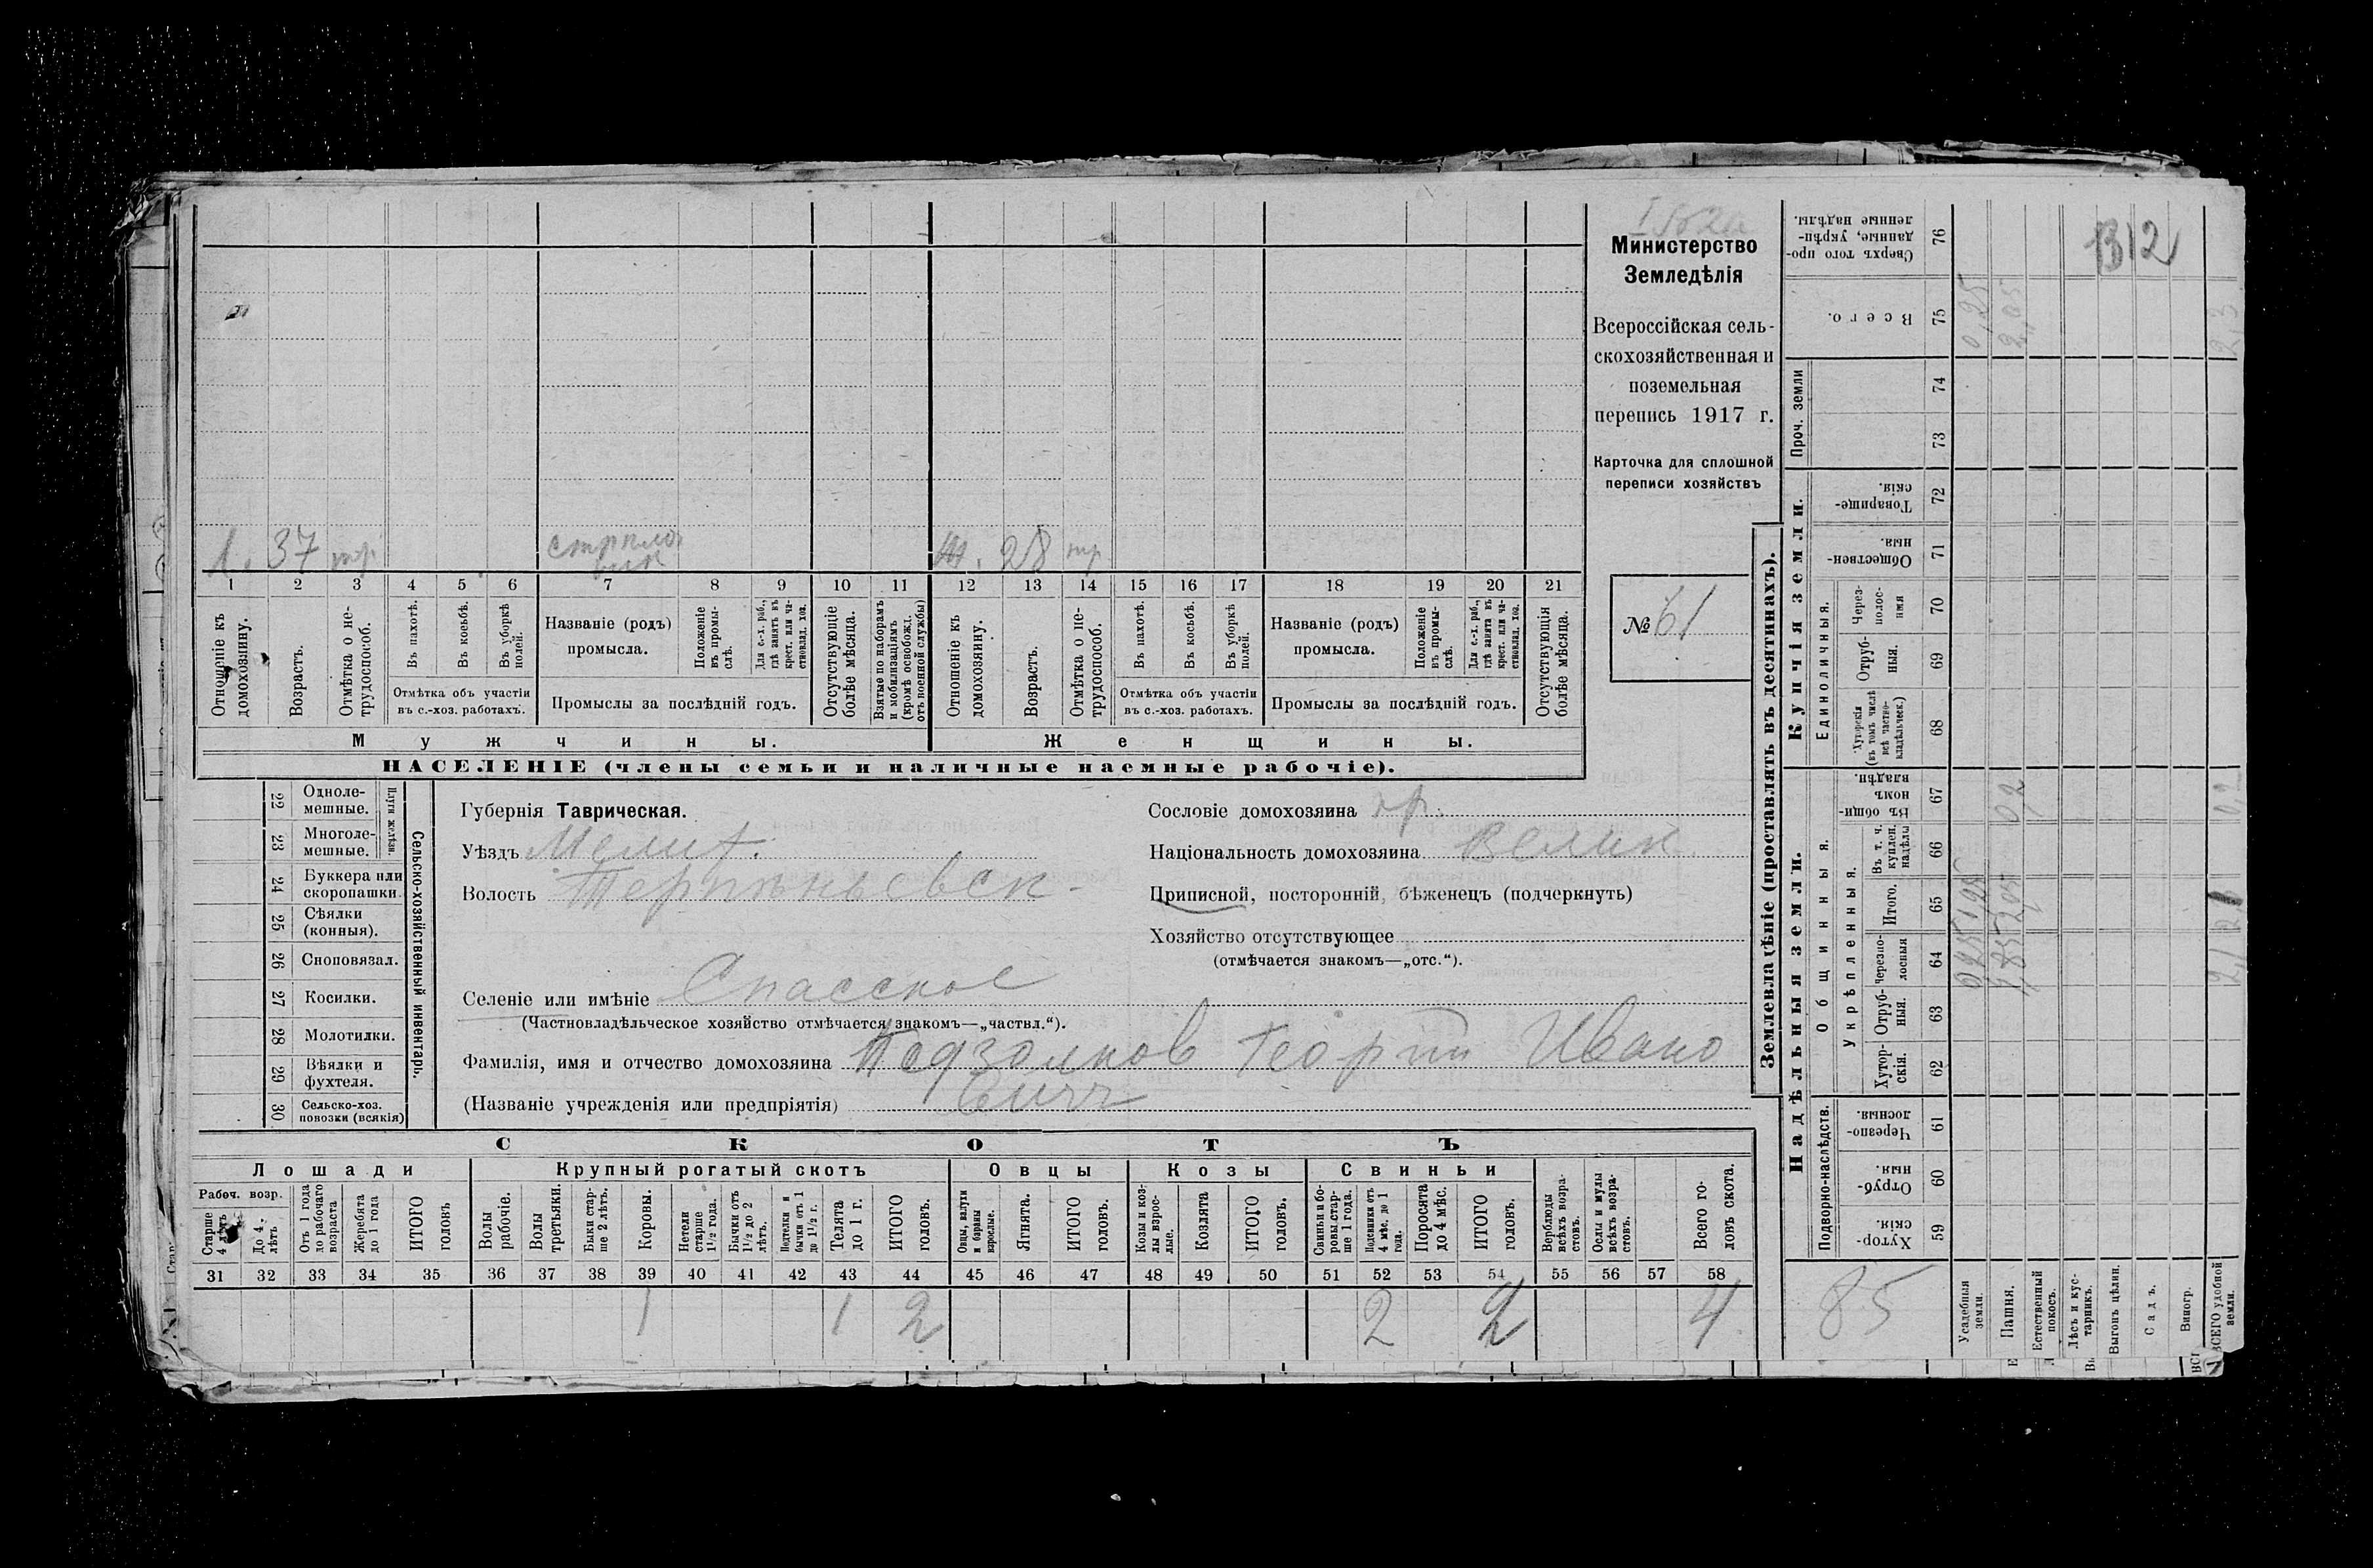 Министерство
Земледѣлія
Всероссійская сель-
скохозяйственная и
поземельная
перепись 1917 г.
Карточка для сплошной
переписи хозяйствъ
№ 61
1. 37
28
1 2 3 4 5 6 7 8 9 10 11 12 13 14 15 16 17 18 19 20 21
Отношеніе къ домохозяину.
Возрастъ.
Отмѣтка о не-трудоспособ.
Въ пахотѣ.
Въ косьбѣ.
Въ уборкѣ полей.
Отмѣтка объ участіи
въ с.-хоз. работахъ.
Названіе (родъ)
промысла.
Положеніе въ промы-слѣ.
Для с.-х. раб., гдѣ занятъ въ крест. или ча-стновлад. хоз.
Промыслы за послѣдній годъ.
Отсутствующіе болѣе мѣсяца.
Взятые по наборамъ и мобилизаціямъ (кромѣ освобожд. отъ военной службы)
Отношеніе къ домохозяину.
Возрастъ.
Отмѣтка о не-трудоспособ.
Въ пахотѣ.
Въ косьбѣ.
Въ уборкѣ полей.
Отмѣтка объ участіи
въ с.-хоз. работахъ.
Названіе (родъ)
промысла.
Положеніе въ промы-слѣ.
Для с.-х. раб., гдѣ занята въ крест. или ча-стновлад. хоз.
Промыслы за послѣдній годъ.
Отсутствующія болѣе мѣсяца.
Мужчины.
Женщины.
НАСЕЛЕНІЕ (члены семьи и наличные наемные рабочіе).
22 Одноле-мешные.
23 Многоле-мешные.
Плуги желѣзн.
24 Буккера или скоропашки.
25 Сѣялки (конныя).
26 Сноповязал.
27 Косилки.
28 Молотилки.
29 Вѣялки и фухтеля.
30 Сельско-хоз. повозки (всякія)
Сельско-хозяйственный инвентарь.
Губернія Таврическая.
Уѣздъ Мелит.
Волость Терпѣньевск-
Селеніе или имѣніе Спасское
(Частновладѣльческое хозяйство отмѣчается знакомъ—„частвл.“).
Фамилія, имя и отчество домохозяина Подзолков Георгій Ивано
вичъ
(Названіе учрежденія или предпріятія)
Сословіе домохозяина кр.
Національность домохозяина Велик.
Приписной, посторонній, бѣженецъ (подчеркнуть)
Хозяйство отсутствующее
(отмѣчается знакомъ—„отс.“).
СКОТЪ
Лошади
Крупный рогатый скотъ
Овцы
Козы
Свиньи
Рабоч. возр.
Старше 4 лѣтъ
До 4 лѣтъ
Отъ 1 года до рабочаго возраста
Жеребята до 1 года
ИТОГО головъ
Волы рабочіе.
Волы третьяки.
Быки стар-ше 2 лѣтъ.
Коровы.
Нетели старше 1½ года.
Бычки отъ 1½ до 2 лѣтъ.
Подтелки и бычки отъ 1 до 1½ г.
Телята до 1 г.
ИТОГО головъ.
Овцы, валухи и бараны взрослые.
Ягнята.
ИТОГО головъ.
Козы и коз-лы взрос-лые.
Козлята
ИТОГО головъ.
Свиньи и бо-ровы стар-ше 1 года.
Подсвинки отъ 4 мѣс. до 1 года.
Поросята до 4 мѣс.
ИТОГО головъ.
Верблюды всѣхъ возра-стовъ.
Ослы и мулы всѣхъ возра-стовъ.
Всего го-ловъ скота.
31 32 33 34 35 36 37 38 39 40 41 42 43 44 45 46 47 48 49 50 51 52 53 54 55 56 57 58
1 1 2 2 2 4
Землевладѣніе (проставлять въ десятинахъ).
Надѣльныя земли.
Купчія земли.
Проч. земли
Подворно-наслѣдств.
Общинныя.
Укрѣпленныя.
Единоличныя.
Хутор-скія. 59
Отруб-ныя. 60
Черезпо-лосныя. 61
Хутор-скія. 62
Отруб-ныя. 63
Черезпо-лосныя 64
Итого. 65
Въ т. ч. куплен. надѣлы 66
Въ общи-номъ владѣн. 67
Хуторскія (въ томъ числѣ всѣ частно-владѣльческ.) 68
Отруб-ныя. 69
Через-полос-ныя 70
Обществен-ныя. 71
Товарище-скія. 72
73
74
Всего. 75
Сверхъ того про-данные, укрѣп-ленные надѣлы. 76
85
Усадебныя земли.
0,25
Пашня.
1,85 0,2 2,05
Естественный покосъ.
Лѣсъ и кус-тарникъ.
Выгонъ цѣлин.
Садъ.
Виногр.
ВСЕГО удобной земли.
2,1 0,2 2,3